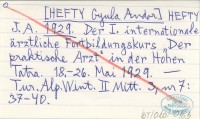 [HEFTY Gyula Andor] HEFTY
J.A. 1929. Der I. internationale
ärztliche Fortbildungskurs „Der
praktische Arzt" in der Hohen
Tatra. 18-26. Mai 1929. —
Tur. Alp. Wint. II Mitt. 3, nr 7:
37-40.